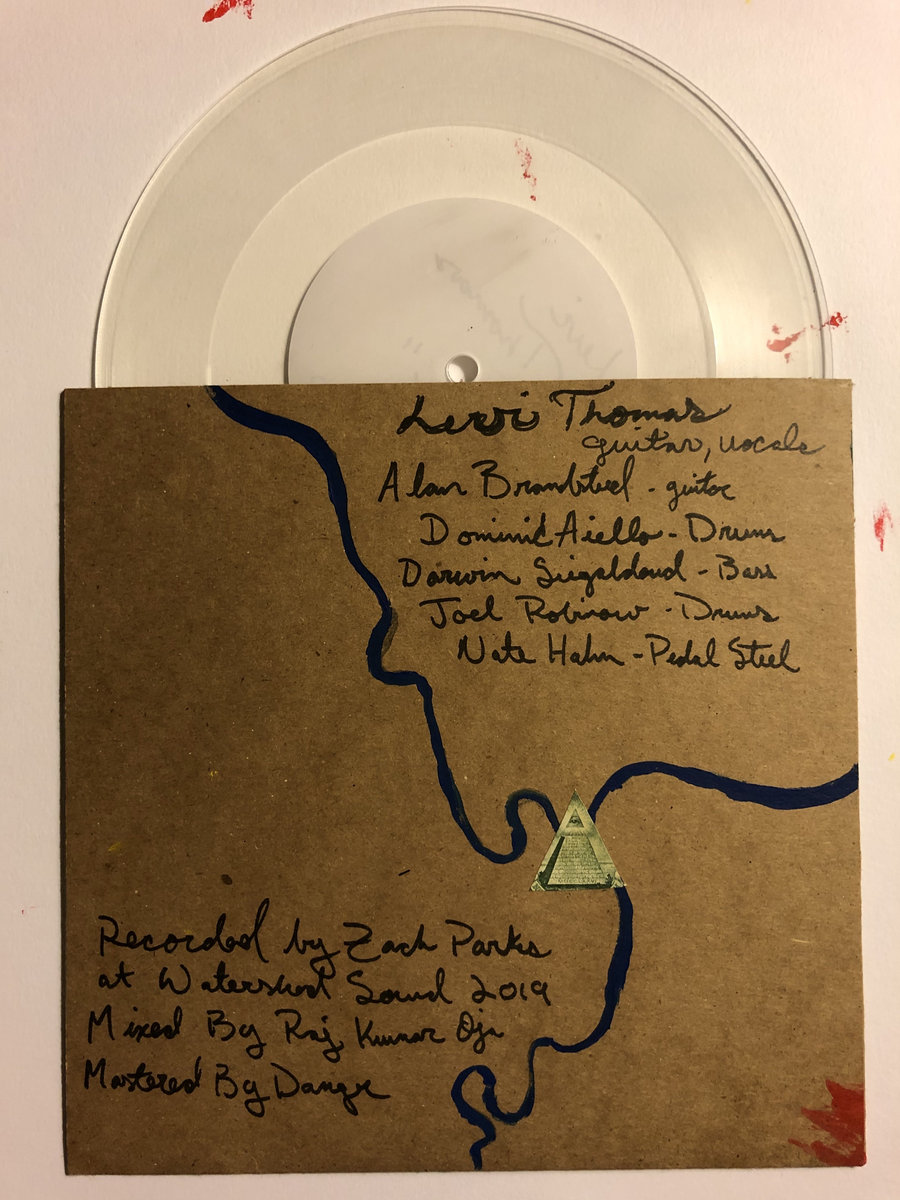 Levi Thomas
guitar, vocals
Alan Brandsteel - guitar
Dominic Aiello - Drums
Darwin Siegaldoud - Bass
Joel Robinow - Drums
Nate Hahn - Pedal Steel
Recorded by Zach Parks
at Watershed Sound 2019
Mixed By Raj Kumar Ojn
Mastered By Danger
Levi
Thomas